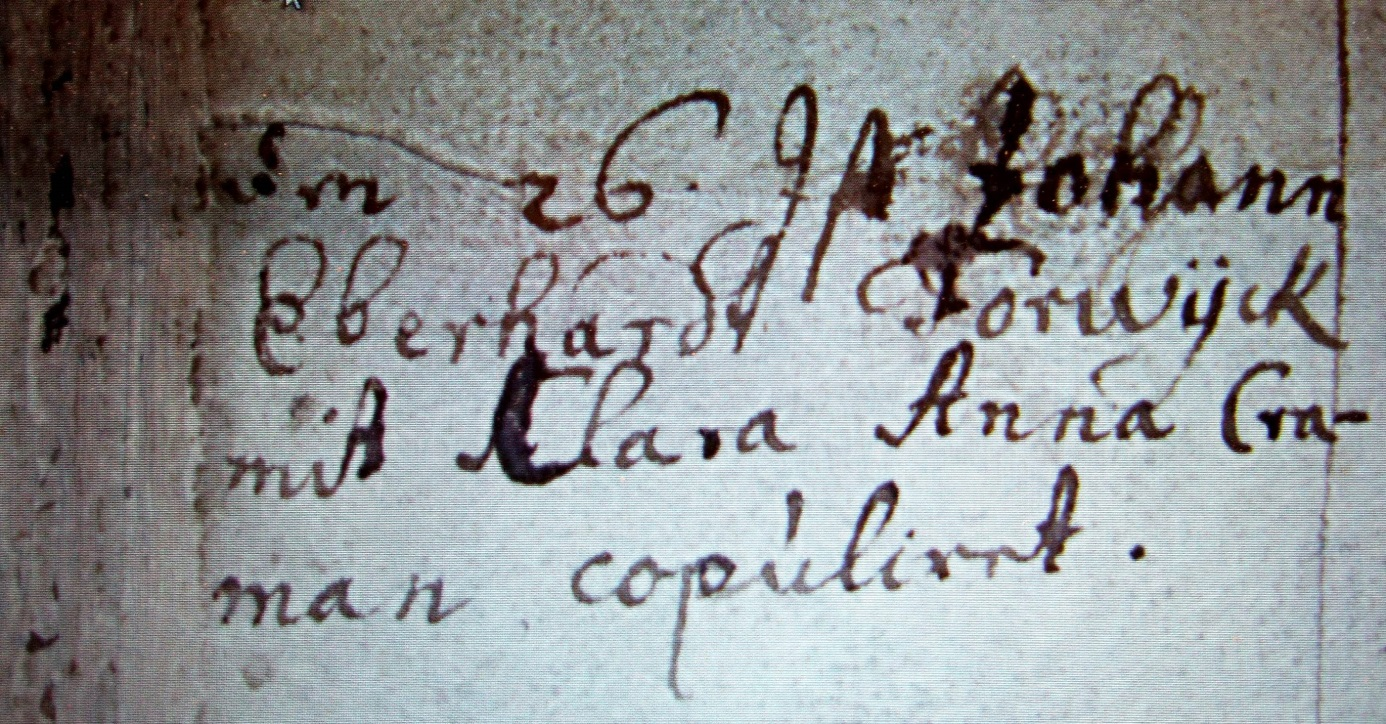 Den 26. Ist Johann
Eberhardt Torwÿck
mit Clara Anna Cra-
man copúliret.